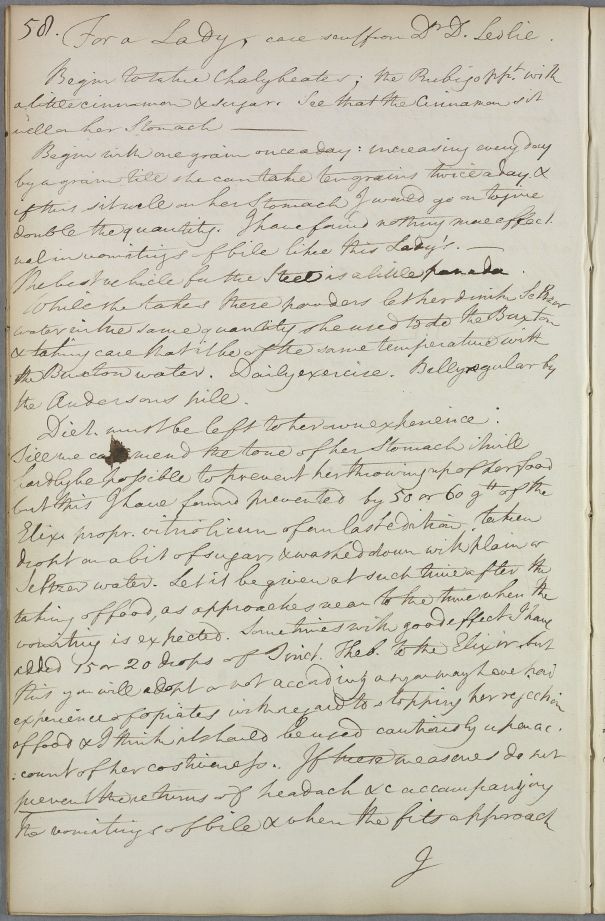 58. For a Lady, case sent from Dr D. Leslie.
Begin to take Chalybeates; the Rubigo ppt. with
a little cinnamon & sugar. See that the Cinnamon sit
well on her Stomach
Begin with one grain once a day: increasing every day
by a grain till she can take ten grains twice a day &
if this sit well on her Stomach I would go on to give
double the quantity. I have found nothing more effect
ual in vomitings of bile like this Lady's.
The best vehicle for the Steel is a little panada.
While she takes these powders let her drink Seltzer
water in the same quantity she used to do the Buxton
& taking care that it be of the same temperature with
the Buxton water. Daily exercise. Belly regular by
the Andersons pill.
Diet must be left to her own experience.
Till we can mend the tone of her Stomach it will
hardly be possible to prevent her throwing up of her food
but this I have found prevented by 50 or 60 gtt of the
Elixr propr. vitriolicum of our last edition, taken
dropt on a bit of sugar, & washed down with plain or
Seltzer water. Let it be given at such time after the
taking of food, as approaches near to the time when the
vomiting is expected. Sometimes with good effect I have
added 15 or 20 drops of Tinct. Theb. to the Elixir, but
this you will adopt or not according as you may have had
experience of opiates with regard to stopping her rejection
of food & I think it should be used cautiously upon ac
:count of her costiveness. If these measures do not
prevent the returns of headach &c accompanying
the vomitings of bile & when the fits approach
I